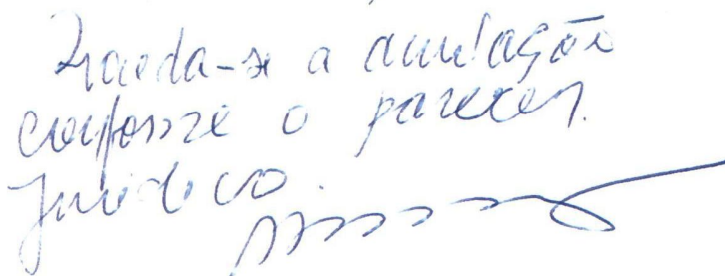 Proceda-se a anulação
conforme o parecer
Jurídico.